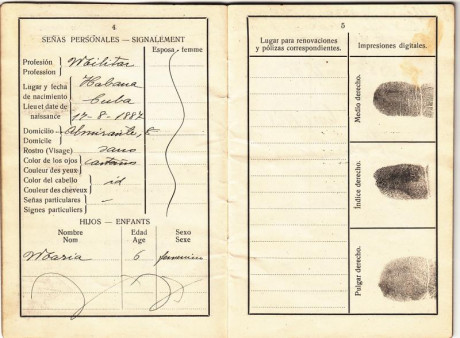 4
SEÑAS PERSONALES — SIGNALEMENT
Esposa - femme
Profesión
Profession
Militar
Lugar y fecha
de nacimiento
Lieu et date de
naissance
Habana
Cuba
17-8-1887
Domicilio
Domicile
Almirante,
Rostro (Visage)
sano
Color de los ojos
Couleur des yeux
castaños
Color del cabello
Couleur des cheveux
id
Señas particulares
Signes particuliers
—
HIJOS — ENFANTS
Nombre
Nom
Edad
Age
Sexo
Sexe
Maria 6 femenino
5
Lugar para renovaciones
y pólizas correspondientes.
Impresiones digitales.
Medio derecho.
Índice derecho.
Pulgar derecho.